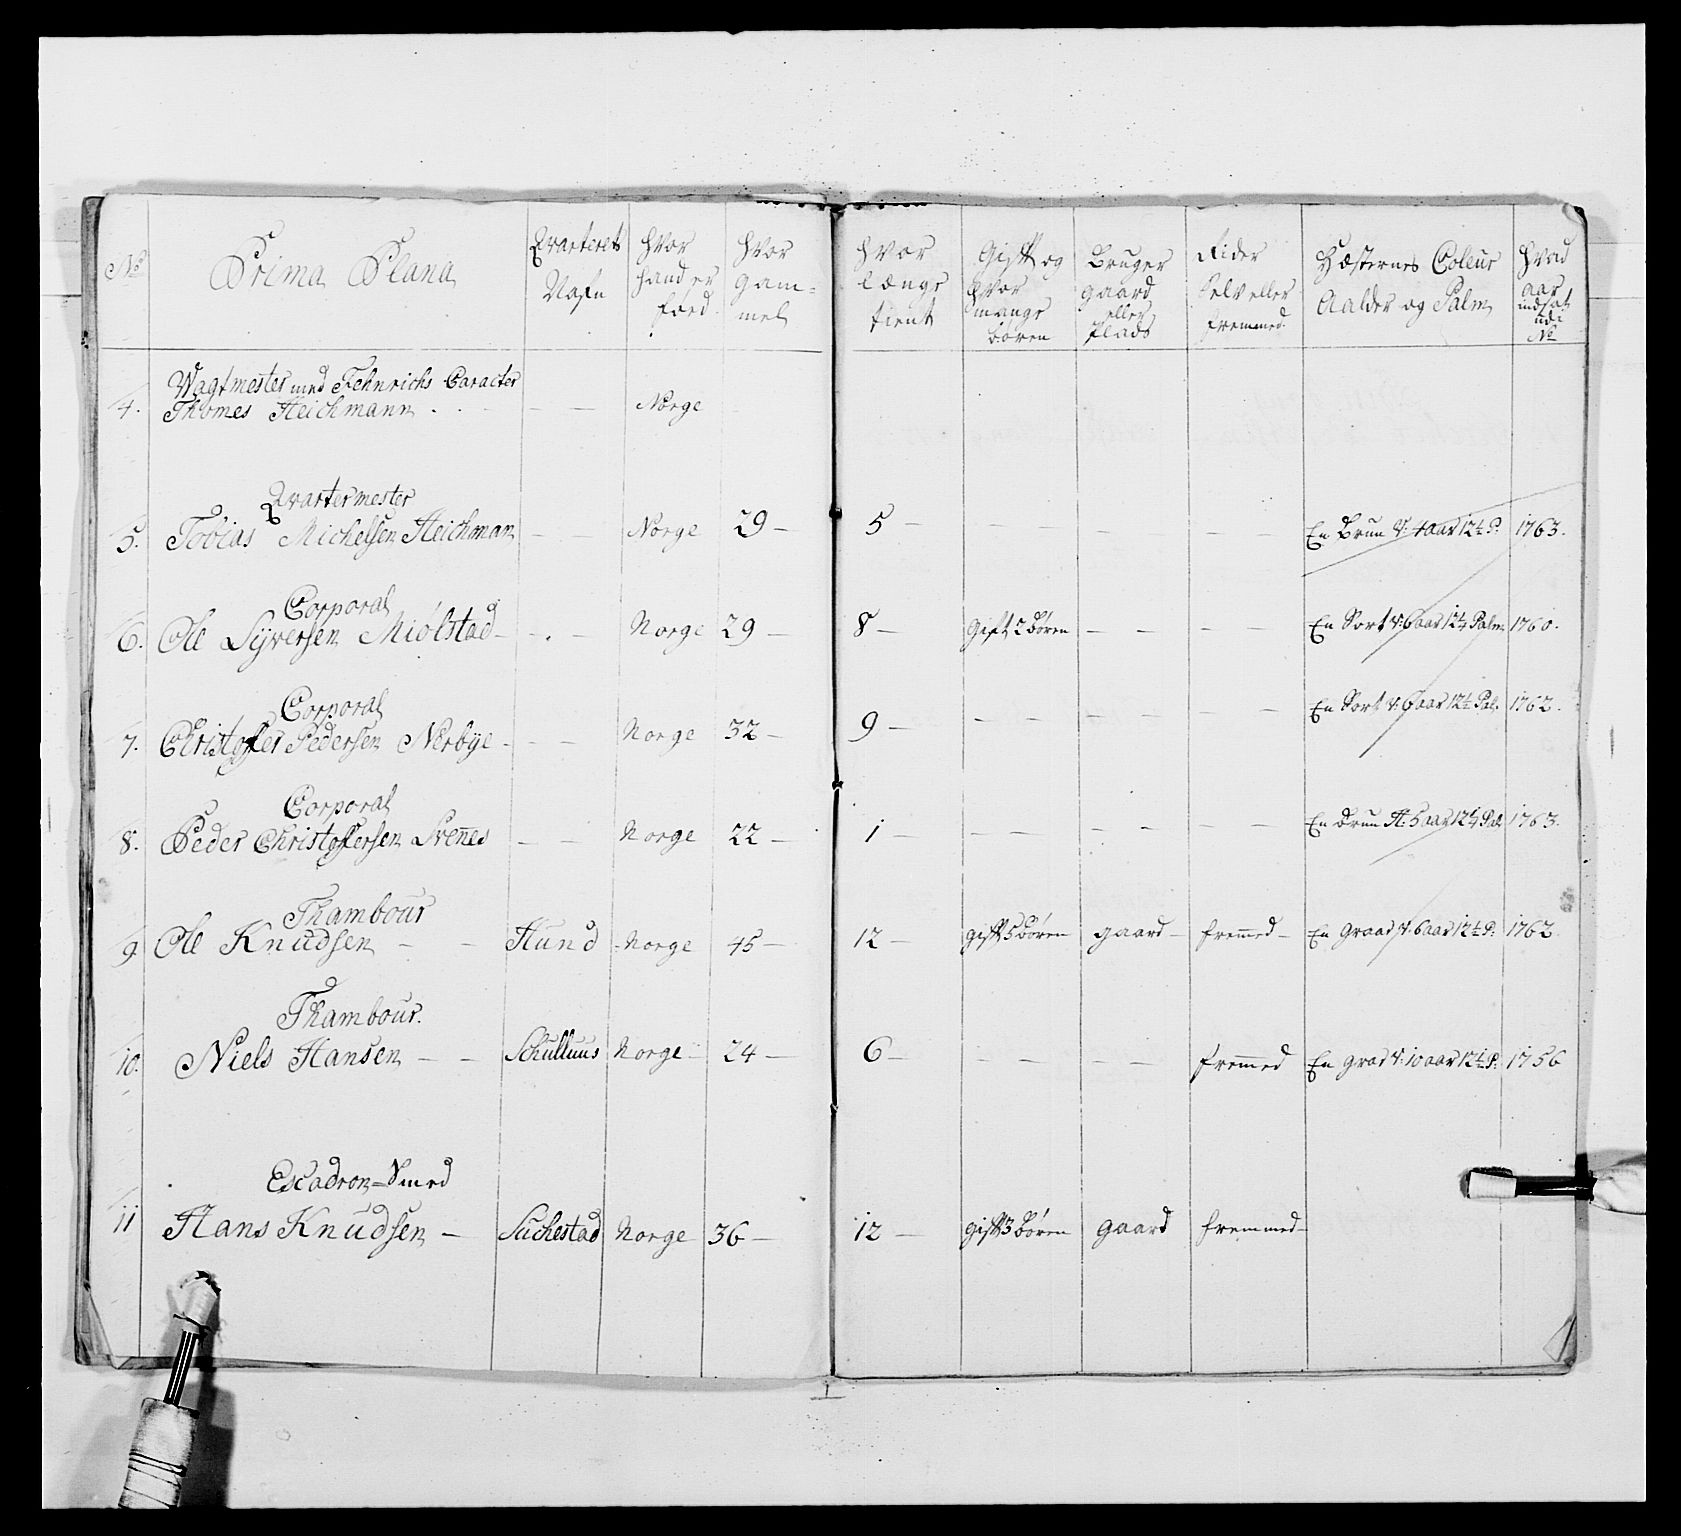 No
Prima Plana
Qvarterets Nafn
Hvor hand er Føed.
Hvor Gam= mel
Hvor længe tient
Gift og Hvor mange børen
Bruger gaard eller Plads
Rider Selv eller fremmed.
Hæsternes Coleur Aalder og Palm
Hvad aar indsat udi No
Wagtmester med Fehnrichs Caracter
4. Thomes Heichmann . . - - - Norge
Qvartermester
5. Tobias Michelsen Heichman - - Norge 29 - 5 - - - - - - En Brun V: 4 aar 12½ P. 1763.
Corporal
6. Ole Syversen Miølstad - - . - Norge 29 - 8 - Gift 2 Børen - - - - En Sort V: 6 aar 12½ Palm 1760.
Corporal
7. Christoffer Pedersen Nerbye - - - Norge 32 - 9 - - - - - - - En Sort V: 6 aar 12½ Pal. 1762.
Corporal
8. Peder Christoffersen Svenes - - Norge 22 - 1 - - - - - - - En Brun H: 5 aar 12½ Pal 1763.
Thambour
9. Ole Knudsen - - Hund Norge 45 - 12 - gift 5 Børen gaard - fremed - En Graae V: 6 aar 12½ P: 1762.
Thambour.
10. Niels Hansen - - Schulluus Norge - 24 - 6 - - - - - fremed En Graa V: 10 aar 12½ P: 1756
Escadron=Smed
11 Hans Knudsen - Suchestad Norge 36 - 12 - gift 3 Børen gaard fremmed -